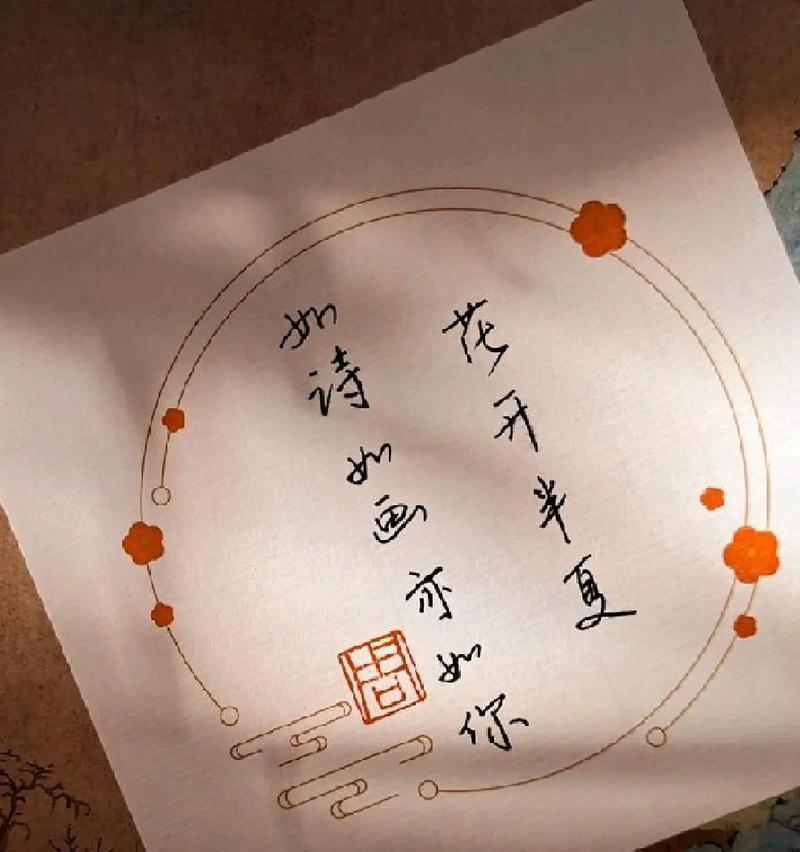 花开半夏
如诗如画亦如你